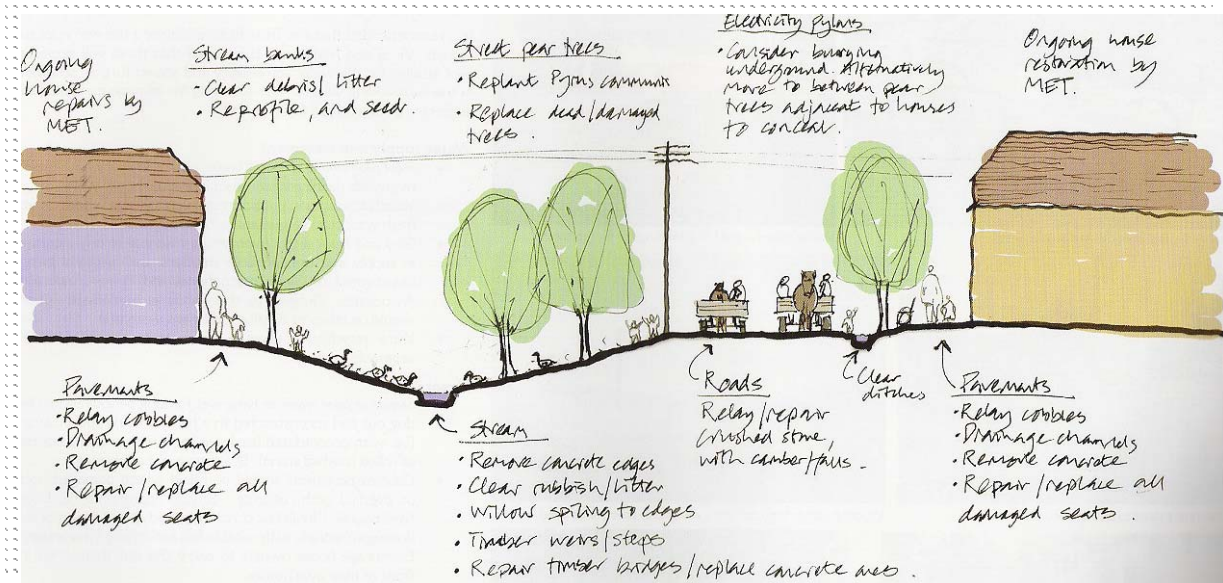 Ongoing
house
repairs by
MET.
Stream banks
• Clear debris/litter
• Reprofile, and seed.
Street pear trees
• Replant Pyrus communis
• Replace dead/damaged
trees.
Electricity pylons
• Consider burying
underground. Alternatively
move to between pear
trees adjacent to houses
to conceal.
Ongoing house
restoration by
MET.
Pavements
• Relay cobbles
• Drainage channels
• Remove concrete
• Repair/replace all
damaged seats
Stream
• Remove concrete edges
• Clear rubbish/litter
• Willow spiling to edges
• Timber weirs/steps
• Repair timber bridges/replace concrete ones.
Roads
Relay/repair
crushed stone,
with camber/falls.
Clear
ditches
Pavements
• Relay cobbles
• Drainage channels
• Remove concrete
• Repair/replace all
damaged seats.